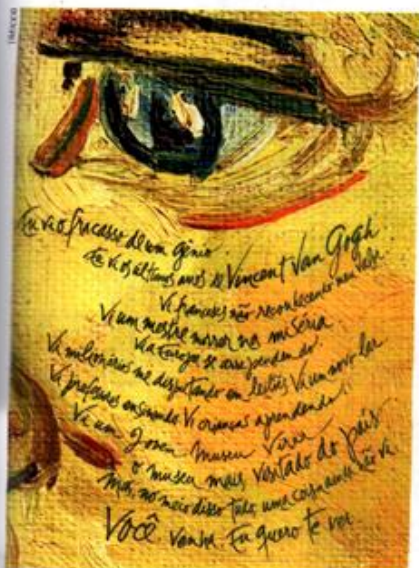 Eu vi o fracasso de um gênio
Eu vi os últimos anos de Vincent Van Gogh
Vi franceses não reconhecendo meu valor
Vi um mestre morrer na miséria
Vi a Europa se arrependendo
Vi milionários me disputando em leilões Vi um novo lar
Vi professores ensinando Vi crianças aprendendo
Vi um jovem museu virar
o museu mais visitado do país
Mas, no meio disso tudo, uma coisa ainda não vi
Você Venha. Eu quero te ver.